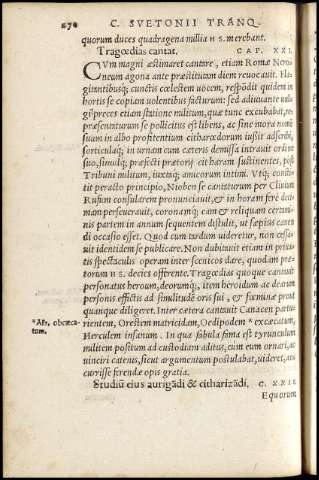 270 C. SVETONII TRANQ.
quorum duces quadragena millia H S. merebant.
Tragœdias cantat. CAP. XXI.
CVm magni æstimaret cantare, etiam Romæ Nero-
neum agona ante præstitutam diem reuocauit. Fla-
gitantibusq; cunctis cœlestem uocem, respōdit quidem in
hortis se copiam uolentibus facturum: sed adiuuante uul-
gi preces etiam statione militum, quæ tunc excubabat, re-
præsentaturum se pollicitus est libens, ac sine mora nomē
suum in albo profitentium citharœdorum iussit adscribi,
sorticulaq; in urnam cum cæteris demissa intrauit ordine
suo, simulq; præfecti prætorij citharam sustinentes, post
Tribuni militum, iuxtaq; amicorum intimi. Vtq; consti-
tit peracto principio, Nioben se cantaturum per Cluuium
Rufum consularem pronunciauit, & in horam ferè deci-
mam perseuerauit, coronamq; eam & reliquam certami-
nis partem in annum sequentem distulit, ut sæpius canen-
di occasio esset. Quod cum tardum uideretur, non cessa-
uit identidem se publicare. Non dubitauit etiam in priua-
tis spectaculis operam inter scenicos dare, quodam præ-
torum H S. decies offerente. Tragœdias quoque cantauit
personatus heroum, deorumq;, item heroidum ac dearum
personis effictis ad similitudē oris sui, & fœminæ prout
quanque diligeret. Inter cætera cantauit Canacen partu-
rientem, Orestem matricidam, Oedipodem * excæcatum,
*Als, obcæca-
tum.
Herculem insanum. In qua fabula fama est tyrunculum
militem positum ad custodiam aditus, cum eum ornari, ac
uinciri catenis, sicut argumentum postulabat, uideret, ac-
currisse ferendæ opis gratia.
Studiū eius aurigādi & citharizādi. C. XXII.
Equorum